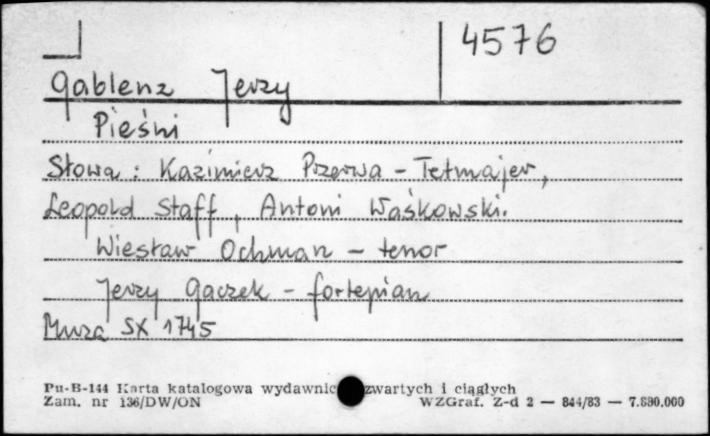 4576
Gablenz Jerzy
Pieśni
Słowa: Kazimierz Przerwa - Tetmajer,
Leopold Staff, Antoni Waśkowski.
Wiesław Ochman - tenor
Jerzy Gaczek - fortepian
Muza SX 1745
Pu-B-144 Karta katalogowa wydawnic zwartych i ciągłych
Zam. nr 136/DW/ON WZGraf. Z-d 2 — 844/83 — 7.880.000